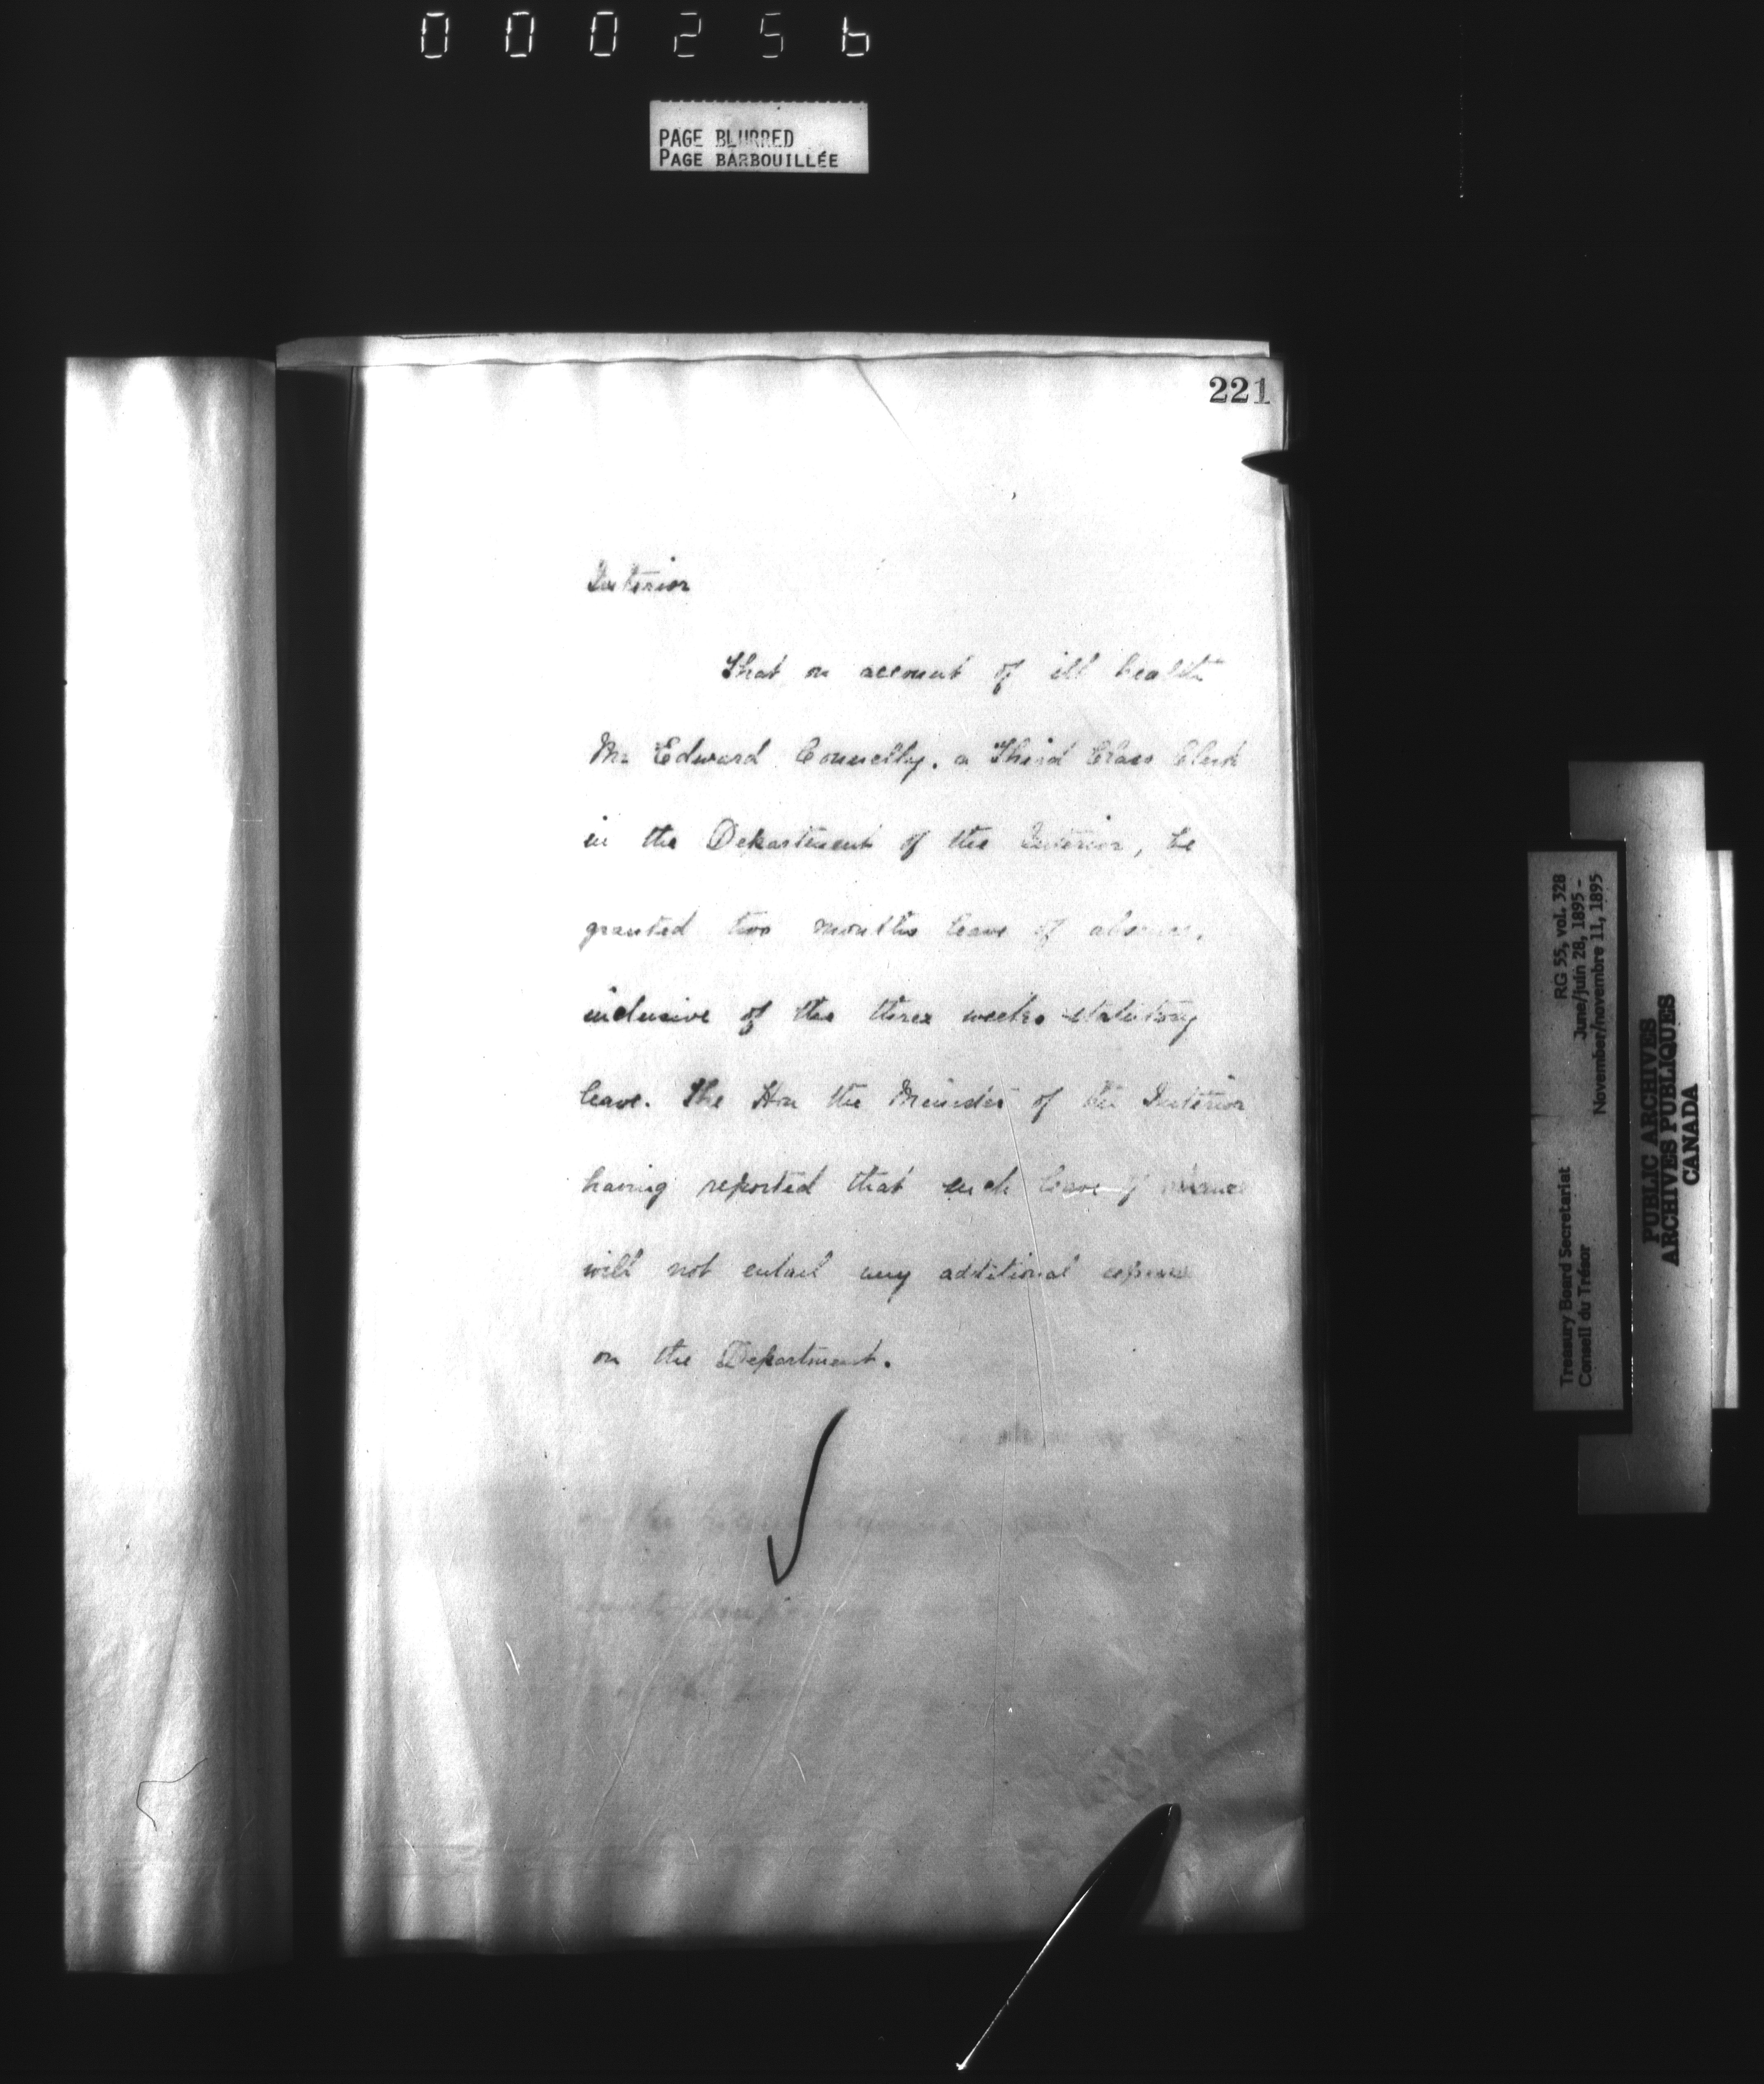 000256
PAGE BLURRED
PAGE BARBOUILLÉE
221
Interior
That on account of ill health
Mr Edward Connelly, a Third Class Clerk
in the Department of the Interior, be
granted two months leave of absence,
inclusive of the three weeks statutory
leave. The Hon the Minister of the Interior
having reported that such leave of absence
will not entail any additional expense
on the Department.
RG 55, vol. 328
June/juin 28, 1895 -
November/novembre 11, 1895
Treasury Board Secretariat
Conseil du Trésor
PUBLIC ARCHIVES
ARCHIVES PUBLIQUES
CANADA